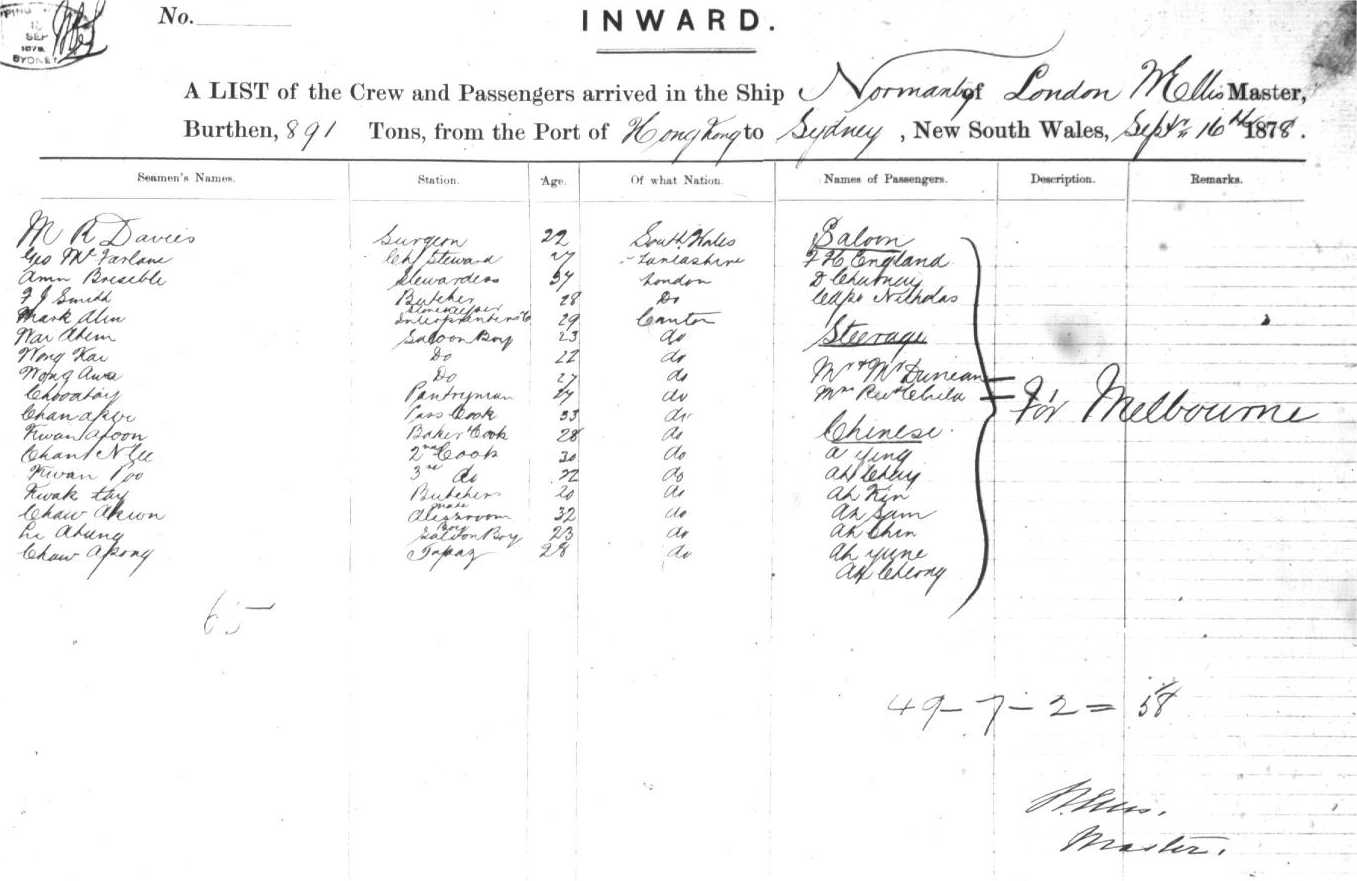 SEP
1878
SYDNEY
No.
INWARD.
A LIST of the Crew and Passengers arrived in the Ship Normanby of London W Ellis Master,
Burthen, 891 Tons, from the Port of Hong Kong to Sydney, New South Wales, Septr 16th 1878.
Seamen's Names. Station. Age. Of what Nation. Names of Passengers. Description. Remarks.
M R Davies Surgeon 22 South Wales Saloon
Geo Mc Farlane Ch Steward 27 Lancashire F H England
Stewardess 37 London D
F J Smith Butcher 28 Do Capt Nicholas
Storekeeper
29 Canton
Saloon Boy 23 do Steerage
Wong Kai Do 22 do
Wong Awa Do 27 do Mr & Mrs Duncan
Pantryman do Mrs Child
Pass Cook 33 do For Melbourne
Kwan Afoon Baker & Cook 28 do Chinese
2nd Cook 30 do A Ying
Kwan Poo 3rd do 22 do Ah Chay
Kwak Tay Butchers 20 do Ah Kin
mate
Chaw Akwon Messroom 32 do Ah Sam
Boy
Li Ahung Saloon Boy 23 do Ah Chin
Chaw Apong Topaz 28 do Ah Yune
Ah Cheong
65
49 - 7 - 2 = 58
W Ellis.
Master.